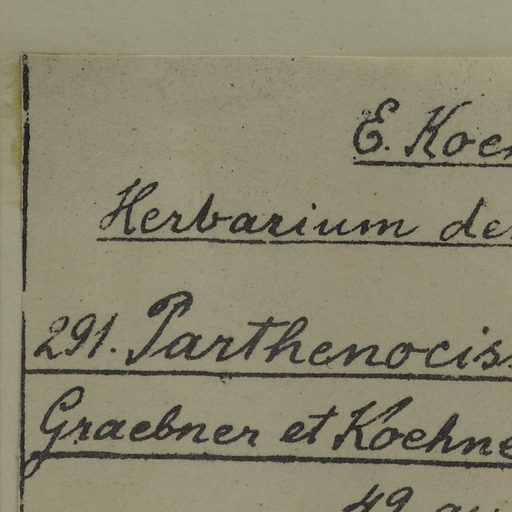 E. Koeh
Herbarium den
291. Parthenociss
Graebner et Koehne